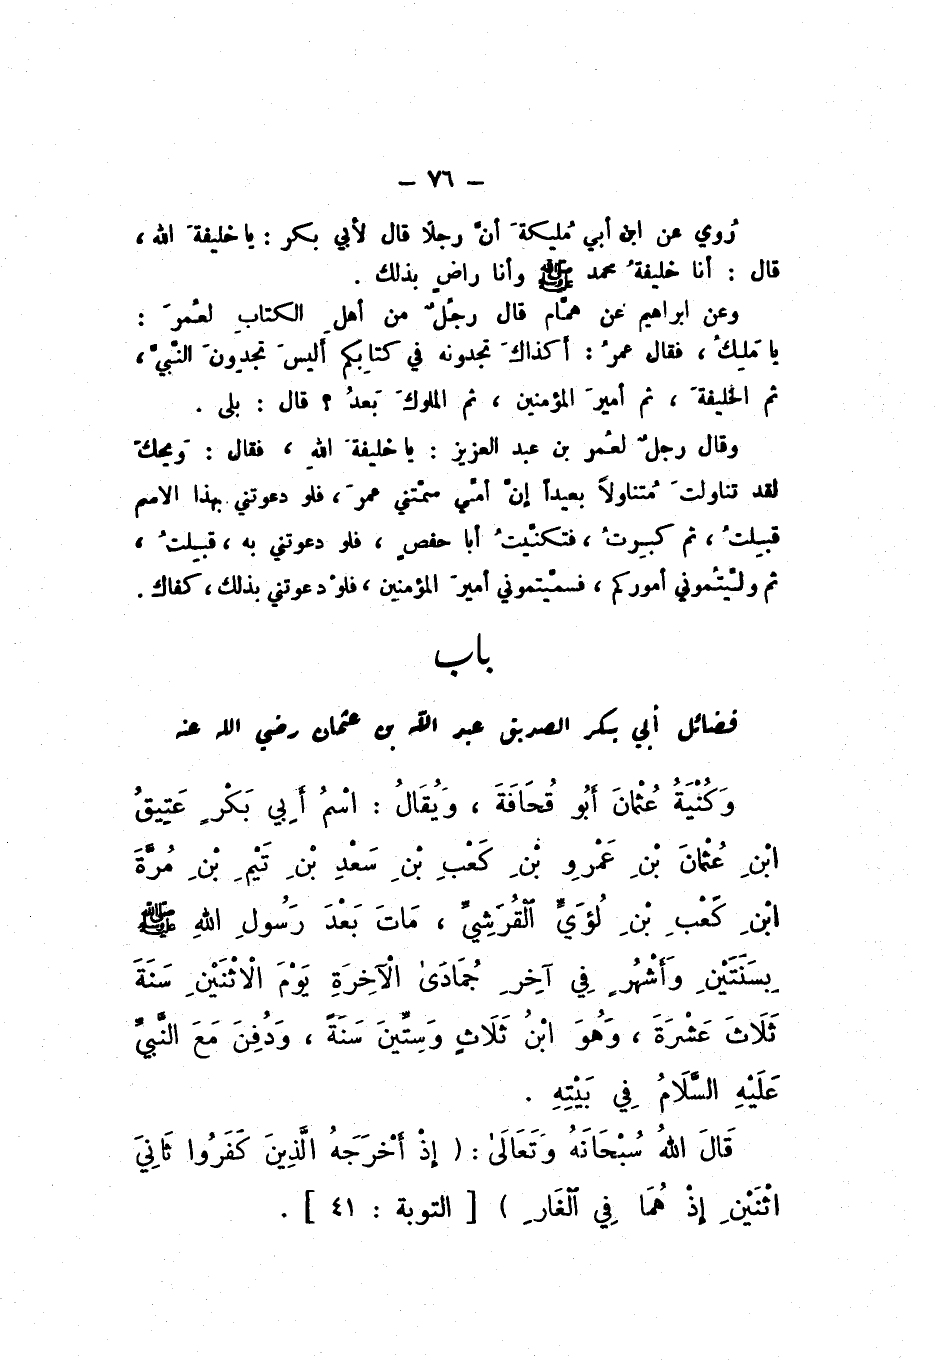 – ٧٦ –
رُوي عن ابن أبي مُليكةَ أنَّ رجلًا قال لأبي بكر : يا خليفةَ الله ،
قال : أنا خليفةُ محمد ﷺ وأنا راضٍ بذلك .
وعن ابراهيم عن همَّام قال رجُلٌ من أهلِ الكتابِ لعُمرَ :
يا مَليكُ ، فقال عمرُ : أكذاكَ تجدونه في كتابِكم أليسَ تجدِونَ النَّبيَّ ،
ثم الخليفةَ ، ثم أميرَ المؤمنين ، ثم الملوكَ بَعدُ ؟ قال : بلى .
وقال رجلٌ لعُمر بن عبد العزيز : يا خليفةَ اللهِ ، فقال : وَيحكَ
لقد تناولتَ مُتناولًا بعيداً إنَّ أمّي سمّتني عمرَ ، فلو دعوتني بهذا الاسم
قبِلتُ ، ثم كبِرتُ ، فتكنّيتُ أبا حفصٍ ، فلو دعوتني به ، قبِلتُ ،
ثم ولّيتُموني أموركم ، فسمّيتموني أميرَ المؤمنين ، فلوْ دعوتني بذلك ، كفاك .
باب
فضائل أبي بكر الصديق عبد الله بن عثمان رضي الله عنه
وَكُنْيَةُ عُثْمَانَ أَبُو قُحَافَةَ ، وَيُقَالُ : اسْمُ أَبِي بَكْرٍ عَتِيقُ
ابْنِ عُثْمَانَ بْنِ عَمْرِو بْنِ كَعْبِ بْنِ سَعْدِ بْنِ تَيْمِ بْنِ مُرَّةَ
ابْنِ كَعْبِ بْنِ لُؤَيٍّ الْقُرَشِيِّ ، مَاتَ بَعْدَ رَسُولِ اللهِ ﷺ
بِسَنَتَيْنِ وَأَشْهُرٍ فِي آخِرِ جُمَادَىٰ الْآخِرَةِ يَوْمَ الْاثْنَيْنِ سَنَةَ
ثَلَاثَ عَشْرَةَ ، وَهُوَ ابْنُ ثَلَاثٍ وَسِتِّينَ سَنَةً ، وَدُفِنَ مَعَ النَّبِيِّ
عَلَيْهِ السَّلَامُ فِي بَيْتِهِ .
قَالَ اللهُ سُبْحَانَهُ وَتَعَالَىٰ : ( إِذْ أَخْرَجَهُ الَّذِينَ كَفَرُوا ثَانِيَ
اثْنَيْنِ إِذْ هُمَا فِي الْغَارِ ) [ التوبة : ٤١ ] .